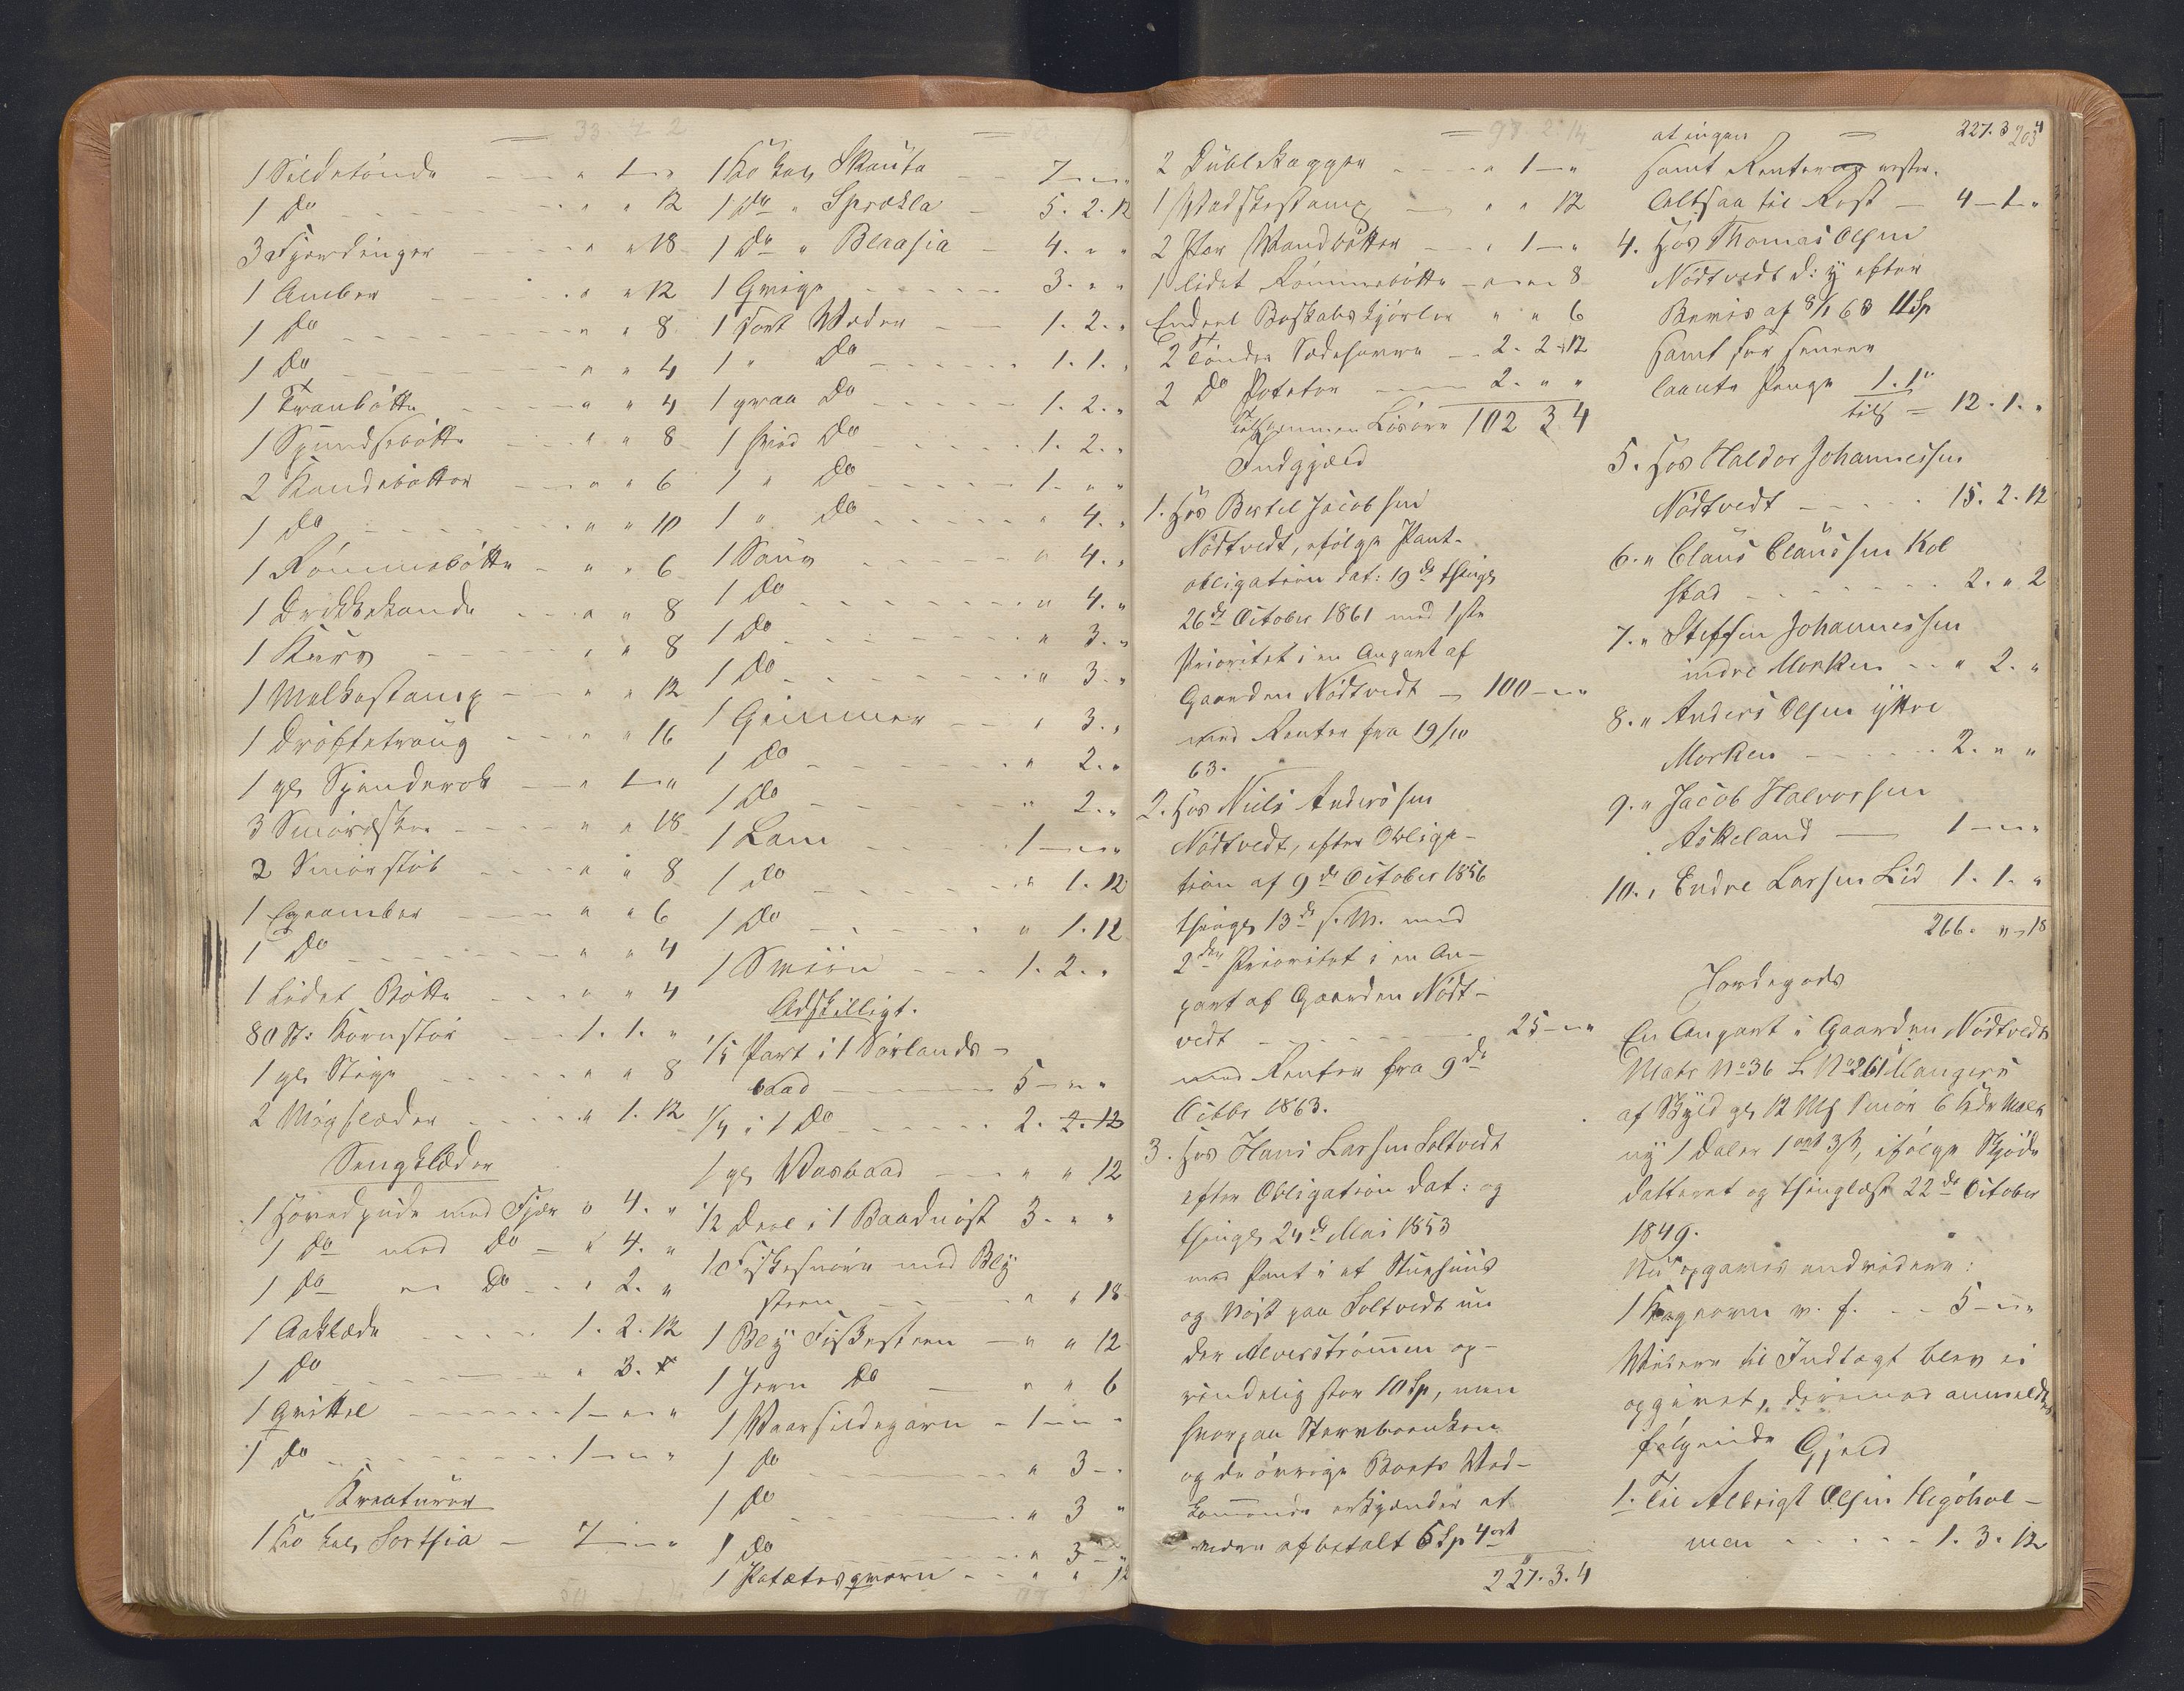 33. 4 2
1 Sildetønde — " 1 — "
1 do — " " 12
3 Fjerdinger — " " 18
1 Ambar — " " 12
1 do — " " 8
1 do — " " 4
1 Tranbøtte — " " 4
1 Spundsebøtte — " " 8
2 Kandebøtter — " " 6
1 do — " " 10
1 Rømmebøtte — " " 6
1 Drikkekande — " " 8
1 Kurv — " " 8
1 Melkestamp — " " 12
1 Drøftetraug — " " 16
1 gl. Spinderok — " 1 — "
3 Smøræsker — " " 18
2 Smørstob — " " 8
1 Ambar — " " 6
1 Do — " " 4
1 lidet Bøtte — " " 4
80 St: Kornstør — 1. 1. "
1 gl. Stige — " " 8
2 Møgslæder — " 1. 12
Sengklæder
1 Hovedpude med Fjær " 4. "
1 do med Do — " 4. "
1 do — Do — " 2. "
1 Aaklæde — 1. 2. 12
1 Do — " 3. "
1 Qvittel — 1 — " — "
1 do — 1 — " — "
Kreaturer
1 Ko kal. Sortsia — 7 — " — "
1 Ko kal. Skauta — 7 — "
1 do " Sprækla — 5. 2. 12
1 do " Blaasia — 4. " "
1 Qvige — 3. " "
1 sort Væder — 1. 2. "
1 " Do — 1. 1. "
1 graa Do — 1. 2. "
1 hvid Do — 1. 2. "
1 " Do — 1. " "
1 " Do — " 4. "
1 Sau — " 4. "
1 Do — " 4. "
1 Do — " 3. "
1 Do — " 3. "
1 Gimmer — " 3. "
1 Do — " 2. "
1 Do — " 2. "
1 Lam — 1 — " "
1 do — " 1. 12
1 Do — " 1. 12
1 Sviin — 1. 2. "
Adskilligt.
1/5 Part i 1 Sørlands-
baad — 5 — " "
1/4 i 1 Do — 2. 2. 12
1 gl. Baad — " " 12
1/2 Deel i 1 Baadnøst 3. " "
1 Fiskesnøre med Bly
steen — " " 18
1 Bly Fiskesteen — " " 12
1 Jern Do — " " 6
1 Vaarsildegarn — 1 — " "
1 Do — " 3 — "
1 Do — " 3 "
1 Do — " 3 — "
1 Potetesqværn — " " 12
97. 2. 14
2 Dublekagger — " 1 — "
1 Vadskestamp — " " 12
2 Par Vandbøtter — " 1 — "
1 lidet Rømmebøtte — " " 8
Endeel Boskabskjørler " " 6
2 Tønder Sædehavre — 2. 2. 12
2 Do Poteter — 2. " "
Tilsammen Løsøre 102 3 4
Indgjæld
1. Hos Bertel Jacobsen
Nødtvedt, ifølge Pant-
obligation dat: 19de thingl
26de October 1861 med 1ste
Prioritet i en Anpart af
Gaarden Nødtvedt — 100 — " "
med Renter fra 19/10
63.
2. Hos Niels Anderssen
Nødtvedt, efter Obliga-
tion af 9de October 1856
thingl. 13de s. M. med
2den Prioritet i en An-
part af Gaarden Nødt-
vedt — 25 — " "
med Renter fra 9de
Octbr 1863.
3. Hos Hans Larsen Soltvedt
efter Obligation dat: og
thingl. 24de Mai 1853
med Pant i et Stuehuus
og Nøst paa Soltvedt un
der Alverstrømmen op-
rindelig stor 10 Sp, men
hvorpaa Stervboenken
og de øvrige Boets Ved-
kommende erkjender at
være afbetalt 5 Sp 4 ort
227. 3. 4
at ingen — 227. 3 4
203
samt Renter og rester.
Altsaa til Rest — 4 — 1 — "
4. Hos Thomas Olsen
Nødtvedt d: y. efter
Beviis af 8/1 63 11 Sp
samt for senere
laante Penge 1. 1 "
tils = 12. 1. "
5. Hos Haldor Johannessen
Nødtvedt — 15. 2. 12
6. " Claus Claussen Kol
stad — 2. " 2
7. " Steffen Johannessen
indre Morken — " 2. "
8. " Anders Olsen ÿttre
Morken — 2. " "
9. " Jacob Halvorsen
Askeland — 1 — " "
10. " Endre Larsen Lid 1. 1. "
266. " 18
Jordegods
En Anpart i Gaarden Nødtvedt
Matr No 36 L No 261 Mangers
af Skyld gl. 12 Mk Smør 6 Kdr Malt
ny 1 Daler 1 ort 3 s, ifølge Skjøde
datteret og thinglæst 22de October
1849.
Nu opgaves endvidere:
1 Kagovn v. f. — 5 — " "
Videre til Indtægt blev ei
opgivet, derimod anmeldtes
følgende Gjæld
1. Til Albrigt Olsen Hegøhol-
men — 1. 3. 12